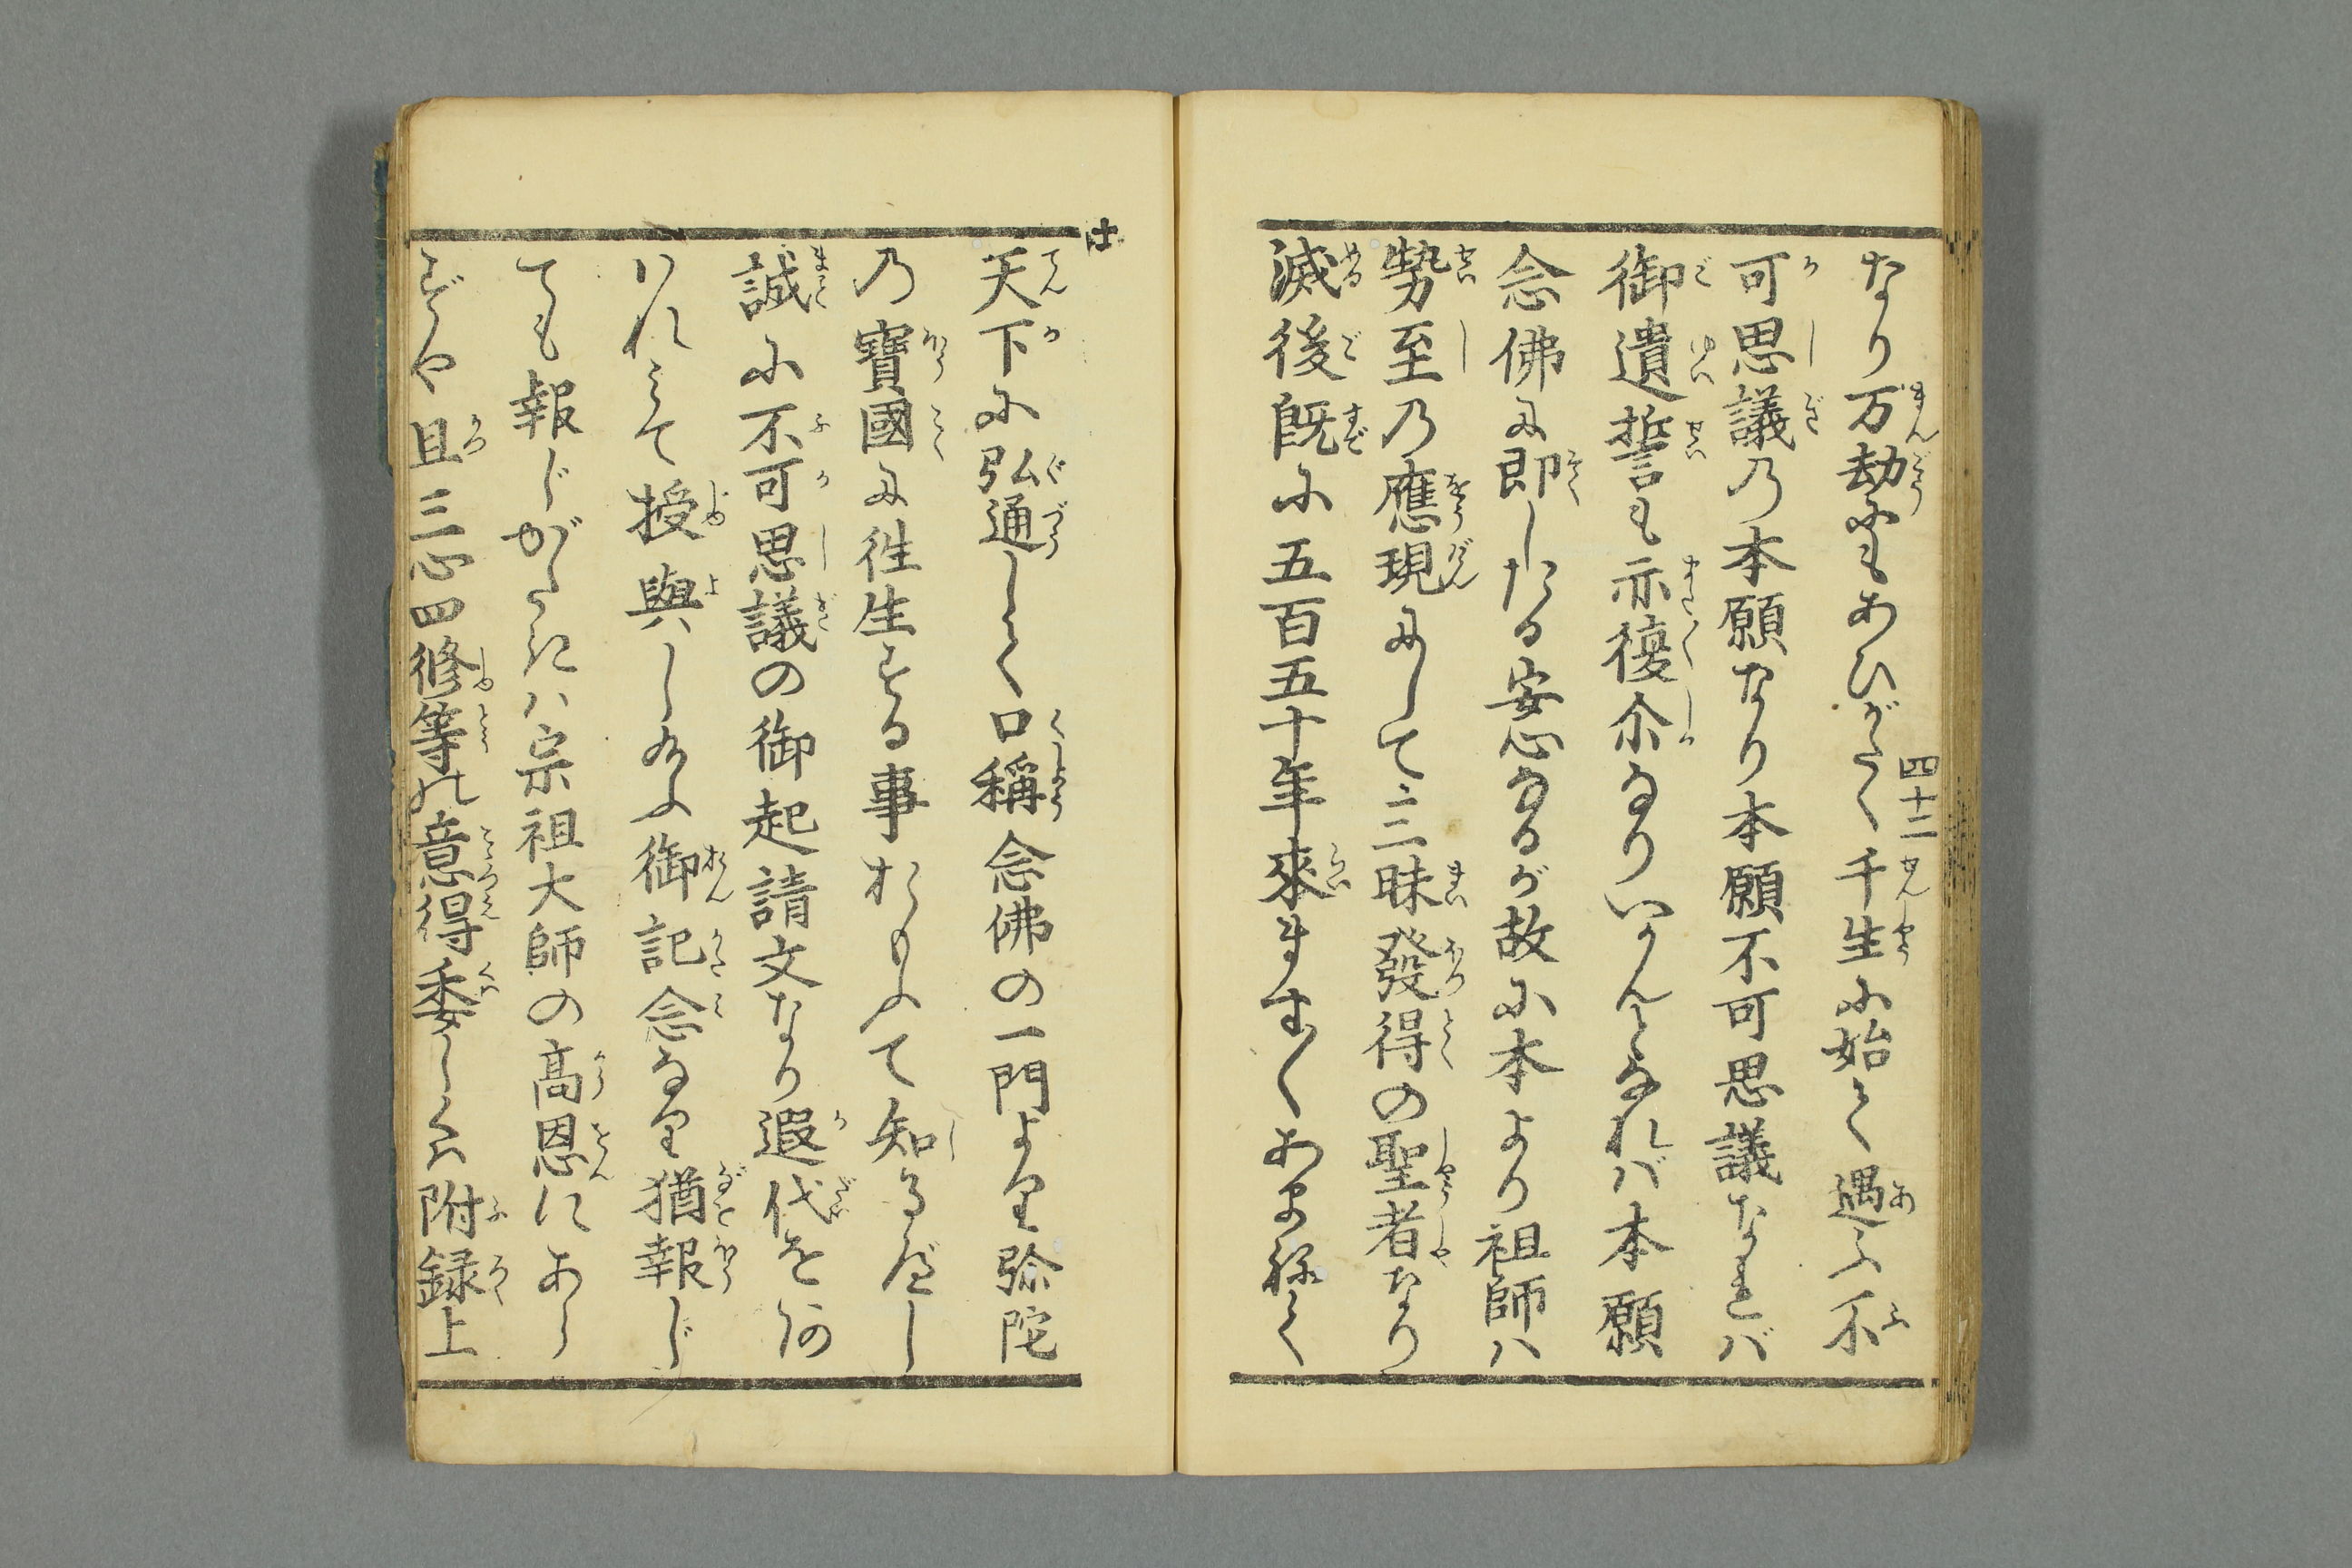 なり万劫にもあひがたく千生に始て遇ふ不
可思議乃本願なり本願不可思議なれバ
御遺誓も亦復尒なりいかんとなれバ本願
念佛に即したる安心なるが故に本より祖師ハ
勢至乃應現にして三昧發得の聖者なり
滅後既に五百五十年來ます〳〵あまねく
四十二
十
天下に弘通して口稱念佛の一門より弥陀
乃寶國に徃生する事おもふて知るべし
誠に不可思議の御起請文なり遐代を
けれとて授與し給ふ御記念なり猶報じ
ても報じがたきハ宗祖大師の高恩にあら
ずや且三心四修等の意得委しくハ附録上